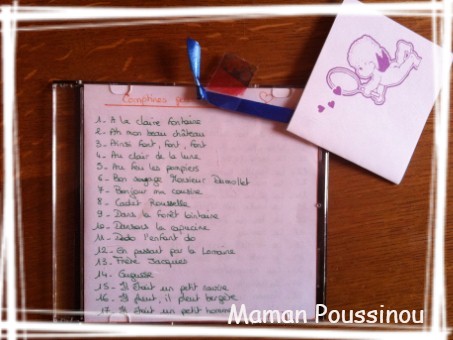 Comptines
1 - A la claire fontaine
2 - Ah mon beau château
3 - Ainsi font, font, font
4 - Au clair de la lune
5 - Au feu les pompiers
6 - Bon voyage Monsieur Dumollet
7 - Bonjour ma cousine
8 - Cadet Rousselle
9 - Dans la forêt lointaine
10 - Dansons la capucine
11 - Dodo l'enfant do
12 - En passant par la Lorraine
13 - Frère Jacques
14 - Gugusse
15 - Il était un petit navire
16 - Il pleut, il pleut bergère
17 - Il était un petit homme
Maman Poussinou